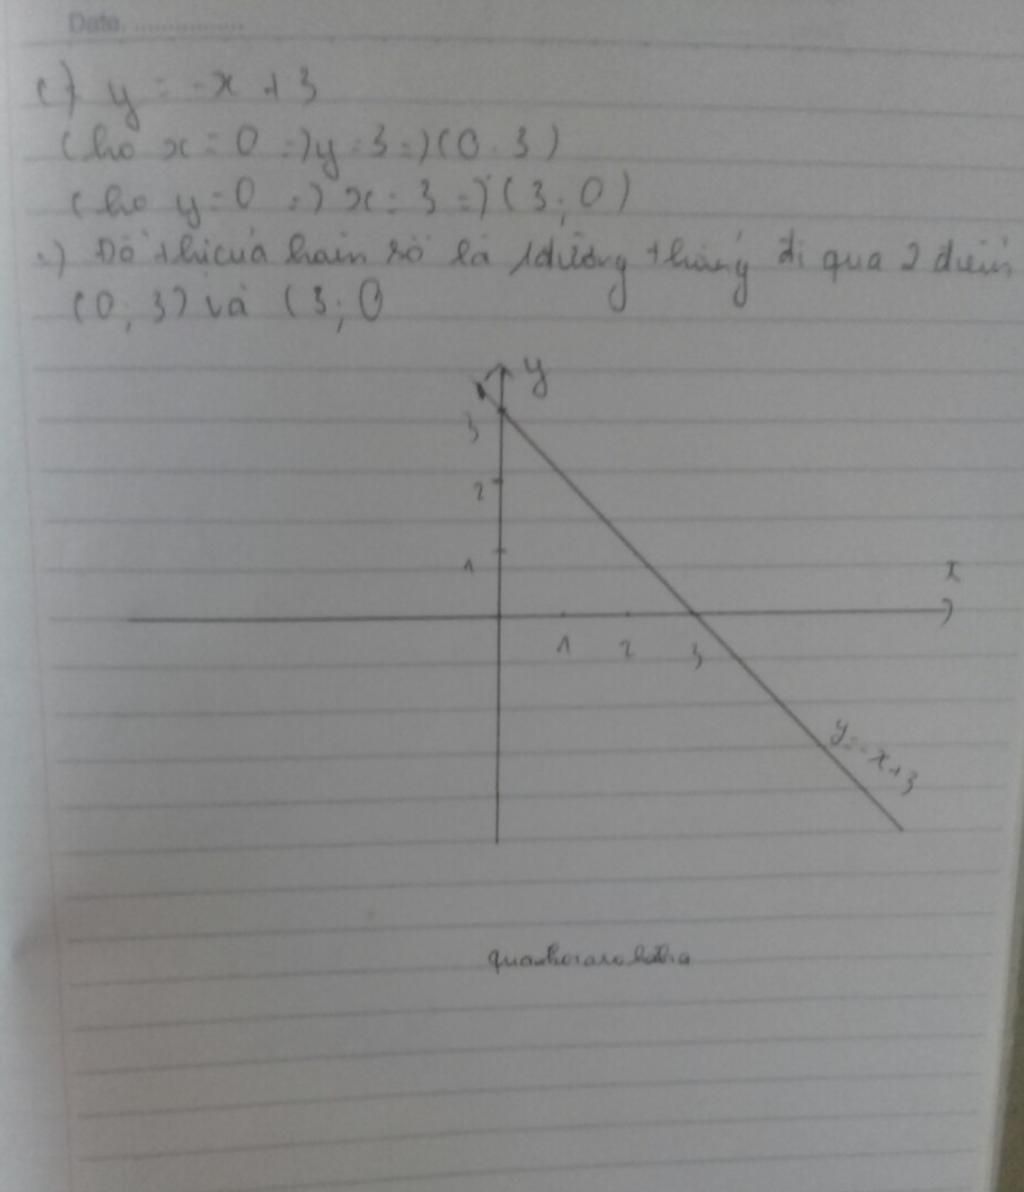 Date. ...............
c) y = -x + 3
Cho x = 0 => y = 3 => (0; 3)
Cho y = 0 => x = 3 => (3; 0)
=) Đồ thị của hàm số là 1 đường thẳng đi qua 2 điểm
(0; 3) và (3; 0
y
3
2
1
x
1 2 3
y = -x + 3